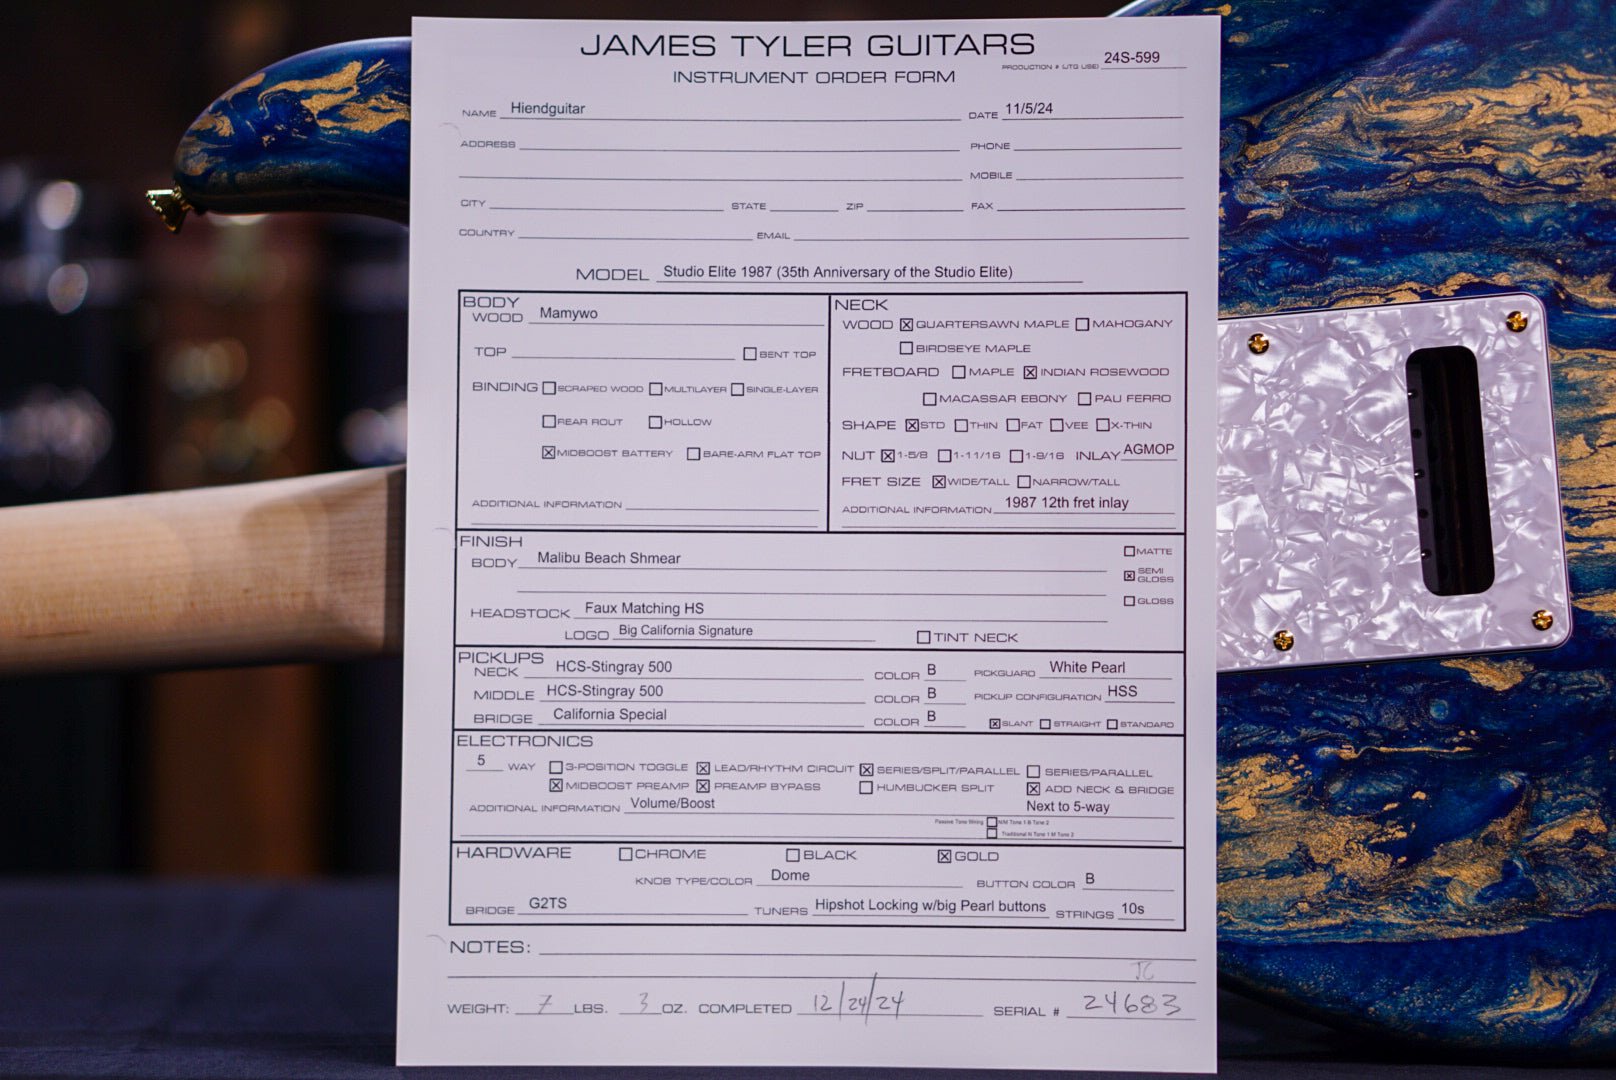 JAMES TYLER GUITARS
PRODUCTION # (JTG USE) 24S-599
INSTRUMENT ORDER FORM
NAME Hiendguitar DATE 11/5/24
ADDRESS PHONE
MOBILE
CITY STATE ZIP FAX
COUNTRY EMAIL
MODEL Studio Elite 1987 (35th Anniversary of the Studio Elite)
BODY
WOOD Mamywo
TOP ☐ BENT TOP
BINDING ☐ SCRAPED WOOD ☐ MULTILAYER ☐ SINGLE-LAYER
☐ REAR ROUT ☐ HOLLOW
☒ MIDBOOST BATTERY ☐ BARE-ARM FLAT TOP
ADDITIONAL INFORMATION
NECK
WOOD ☒ QUARTERSAWN MAPLE ☐ MAHOGANY
☐ BIRDSEYE MAPLE
FRETBOARD ☐ MAPLE ☒ INDIAN ROSEWOOD
☐ MACASSAR EBONY ☐ PAU FERRO
SHAPE ☒ STD ☐ THIN ☐ FAT ☐ VEE ☐ X-THIN
NUT ☒ 1-5/8 ☐ 1-11/16 ☐ 1-9/16 INLAY AGMOP
FRET SIZE ☒ WIDE/TALL ☐ NARROW/TALL
ADDITIONAL INFORMATION 1987 12th fret inlay
FINISH
BODY Malibu Beach Shmear
☐ MATTE
☒ SEMI GLOSS
☐ GLOSS
HEADSTOCK Faux Matching HS
LOGO Big California Signature ☐ TINT NECK
PICKUPS
NECK HCS-Stingray 500 COLOR B PICKGUARD White Pearl
MIDDLE HCS-Stingray 500 COLOR B PICKUP CONFIGURATION HSS
BRIDGE California Special COLOR B ☒ SLANT ☐ STRAIGHT ☐ STANDARD
ELECTRONICS
5 WAY ☐ 3-POSITION TOGGLE ☒ LEAD/RHYTHM CIRCUIT ☒ SERIES/SPLIT/PARALLEL ☐ SERIES/PARALLEL
☒ MIDBOOST PREAMP ☒ PREAMP BYPASS ☐ HUMBUCKER SPLIT ☒ ADD NECK & BRIDGE
ADDITIONAL INFORMATION Volume/Boost Next to 5-way
Passive Tone Wiring ☐ N/M Tone 1 B Tone 2
☐ Traditional N Tone 1 M Tone 2
HARDWARE ☐ CHROME ☐ BLACK ☒ GOLD
KNOB TYPE/COLOR Dome BUTTON COLOR B
BRIDGE G2TS TUNERS Hipshot Locking w/big Pearl buttons STRINGS 10s
NOTES:
JC
WEIGHT: 7 LBS. 3 OZ. COMPLETED 12/24/24 SERIAL # 24683